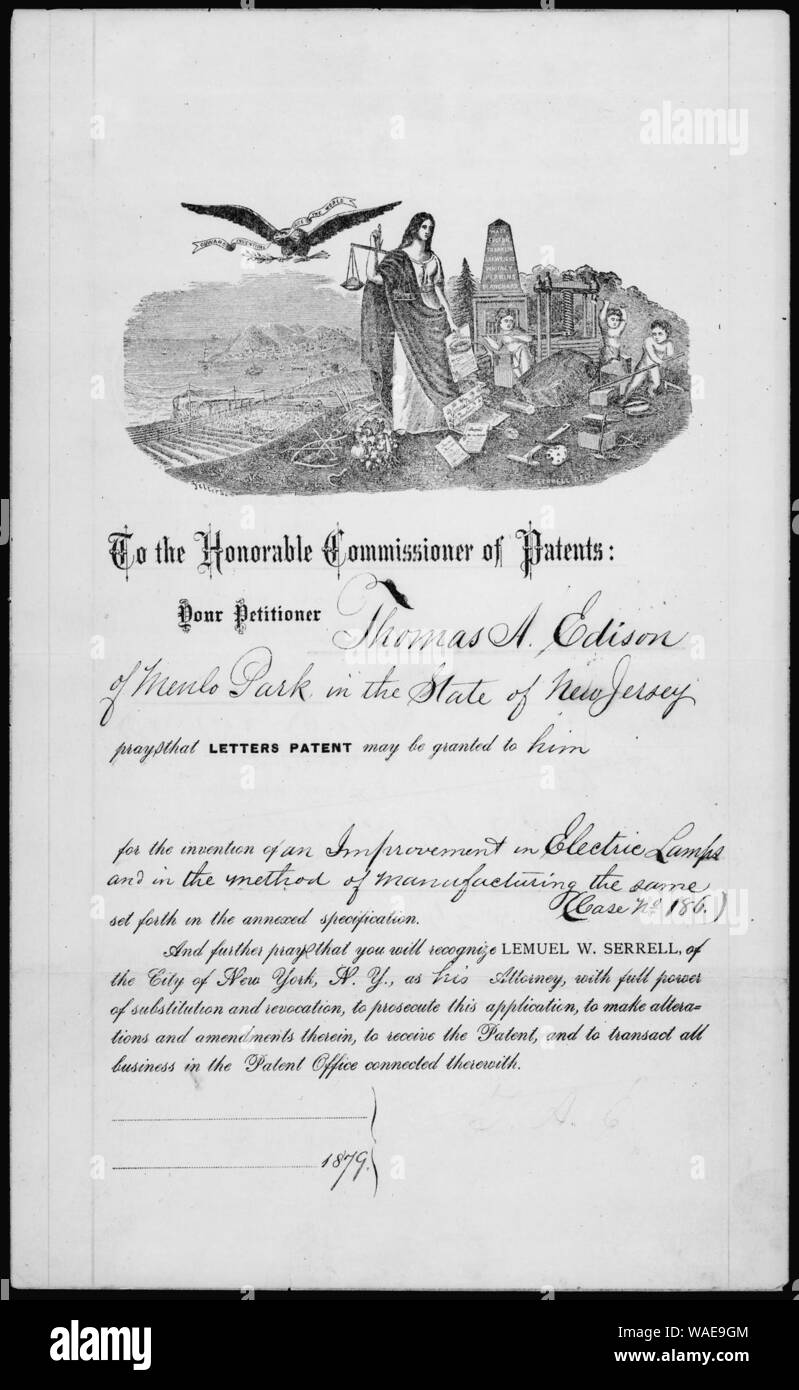 alamy
ONWARD INVENTION
THE WORLD
WATT
FULTON
FRANKLIN
ARKWRIGHT
WHITNEY
PERKINS
BLANCHARD
To the Honorable Commissioner of Patents:
Your Petitioner Thomas A. Edison
of Menlo Park in the State of New Jersey
prays that LETTERS PATENT may be granted to him
for the invention of an Improvement in Electric Lamps
and in the method of manufacturing the same
(Case No 186.)
set forth in the annexed specification.
And further prays that you will recognize LEMUEL W. SERRELL, of
the City of New York, N. Y., as his Attorney, with full power
of substitution and revocation, to prosecute this application, to make altera=
tions and amendments therein, to receive the Patent, and to transact all
business in the Patent Office connected therewith.
T. A. E
1879.
alamy
Image ID: WAE9GM
www.alamy.com